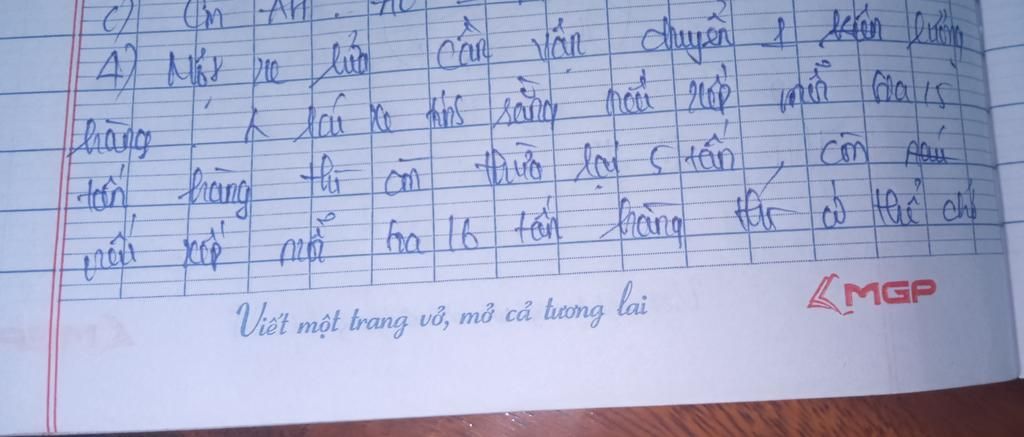 c) Cm AH . AC
4) Một xe lửa cần vận chuyển 1 lượng
hàng . lái xe tính rằng nếu xếp mỗi toa 15
tấn hàng thì còn thừa lại 5 tấn , còn nếu
nếu xếp mỗi toa 16 tấn hàng thì có thể chở
Viết một trang vở, mở cả tương lai
MGP